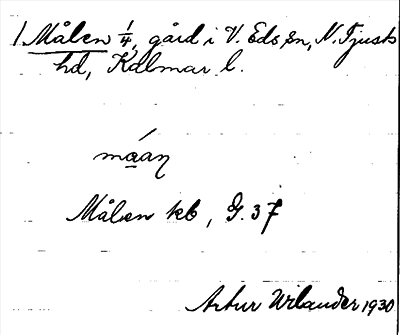 1 Målen 1/4, gård i V. Eds sn, N. Tjusts
hd, Kalmar l.
måaṇ
Målen kb, G. 37
Artur Wilander 1930